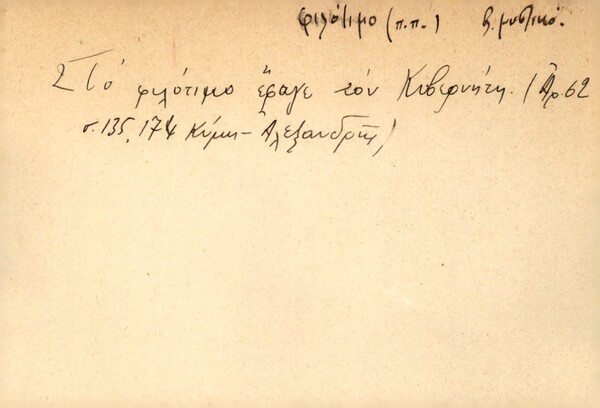 φιλότιμο (π.π.) β. μυστικό.
2 Τό φιλότιμο ἔφαγε τόν Κυβερνήτη. (Ἀρ. 62
σ. 135, 174 Κύμη - Ἀλεξανδρῆς)